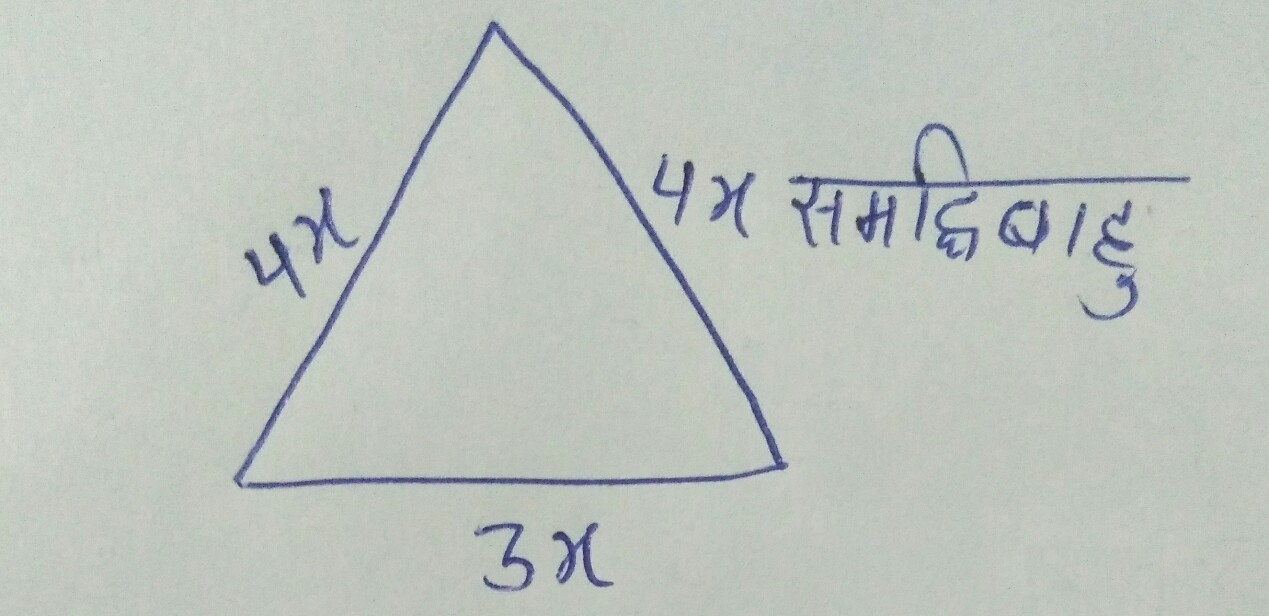 4x
4x समद्विबाहु
3x